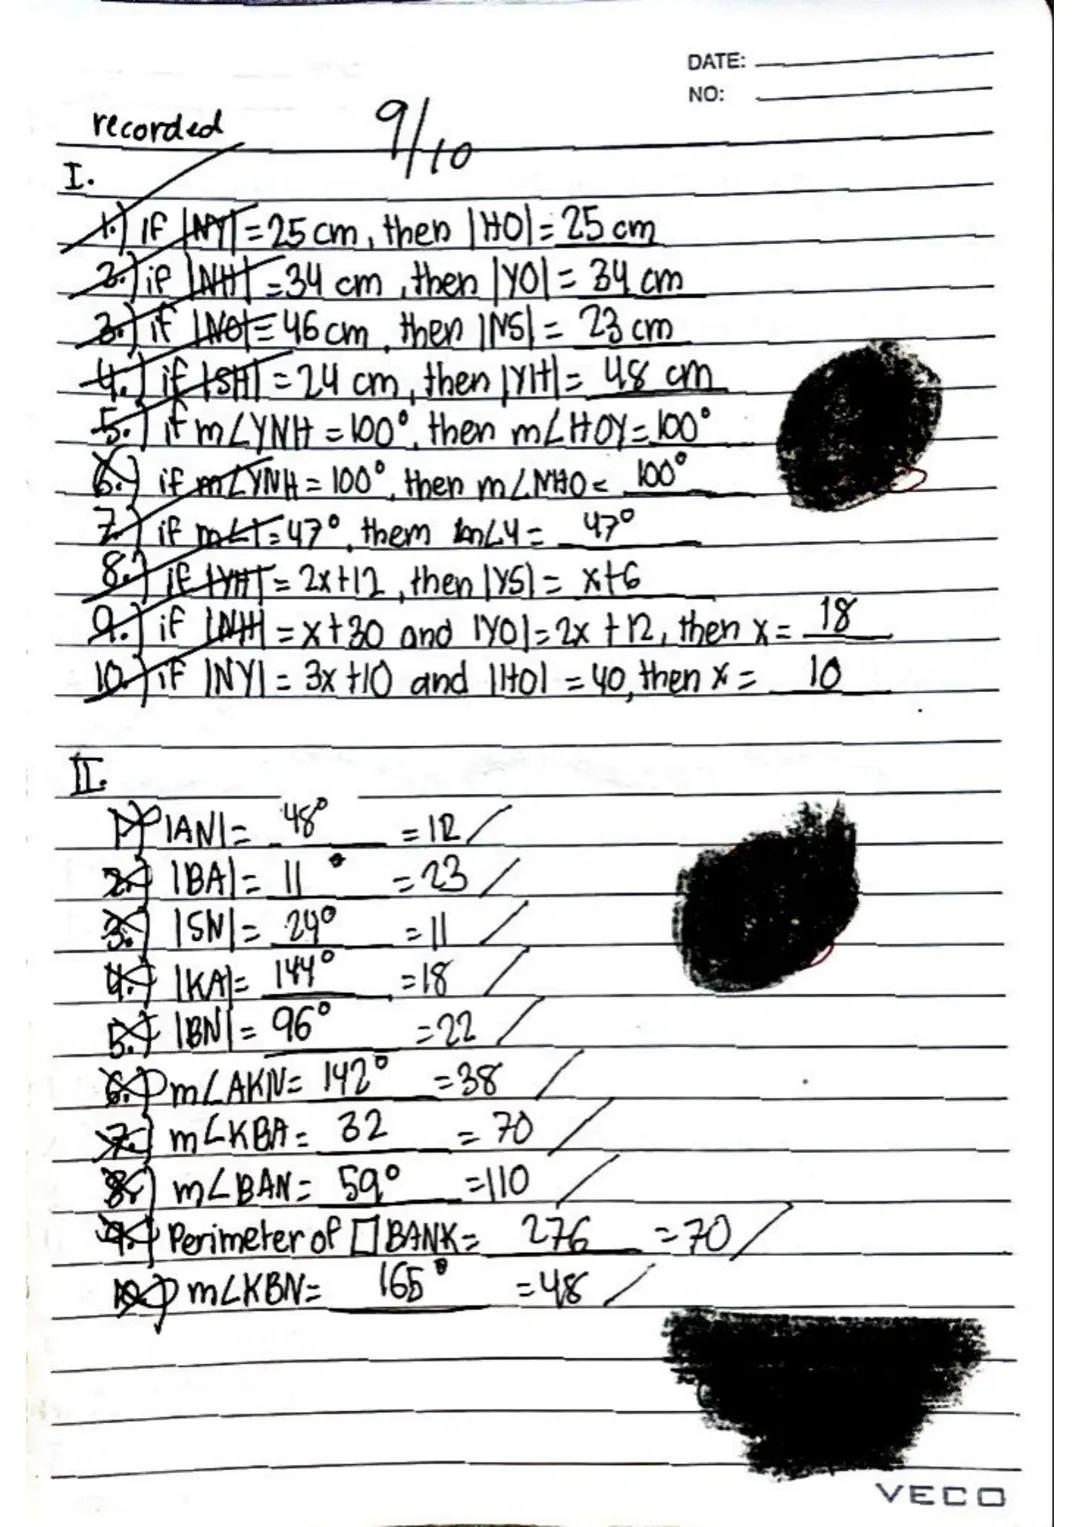 DATE:
NO:
recorded 9/10
I.
1.) If |NY| = 25 cm, then |HO| = 25 cm
2.) if |NH| = 34 cm, then |YO| = 34 cm
3.) if |NO| = 46 cm, then |NS| = 23 cm
4.) if |SH| = 24 cm, then |YH| = 48 cm
5.) if m∠YNH = 100°, then m∠HOY = 100°
6.) if m∠YNH = 100°, then m∠NHO = 100°
7.) if m∠1 = 47°, them m∠4 = 47°
8.) if |YH| = 2x+12, then |YS| = x+6
9.) if |NH| = x+30 and |YO| = 2x+12, then x = 18
10.) if |NY| = 3x+10 and |HO| = 40, then x = 10
II.
1.) |AN| = 48° = 12 /
2.) |BA| = 11° = 23 /
3.) |SN| = 24° = 11 /
4.) |KA| = 144° = 18 /
5.) |BN| = 96° = 22 /
6.) m∠AKN = 142° = 38 /
7.) m∠KBA = 32 = 70 /
8.) m∠BAN = 59° = 110 /
9.) Perimeter of ▯BANK = 276 = 70 /
10.) m∠KBN = 165° = 48 /
VECO